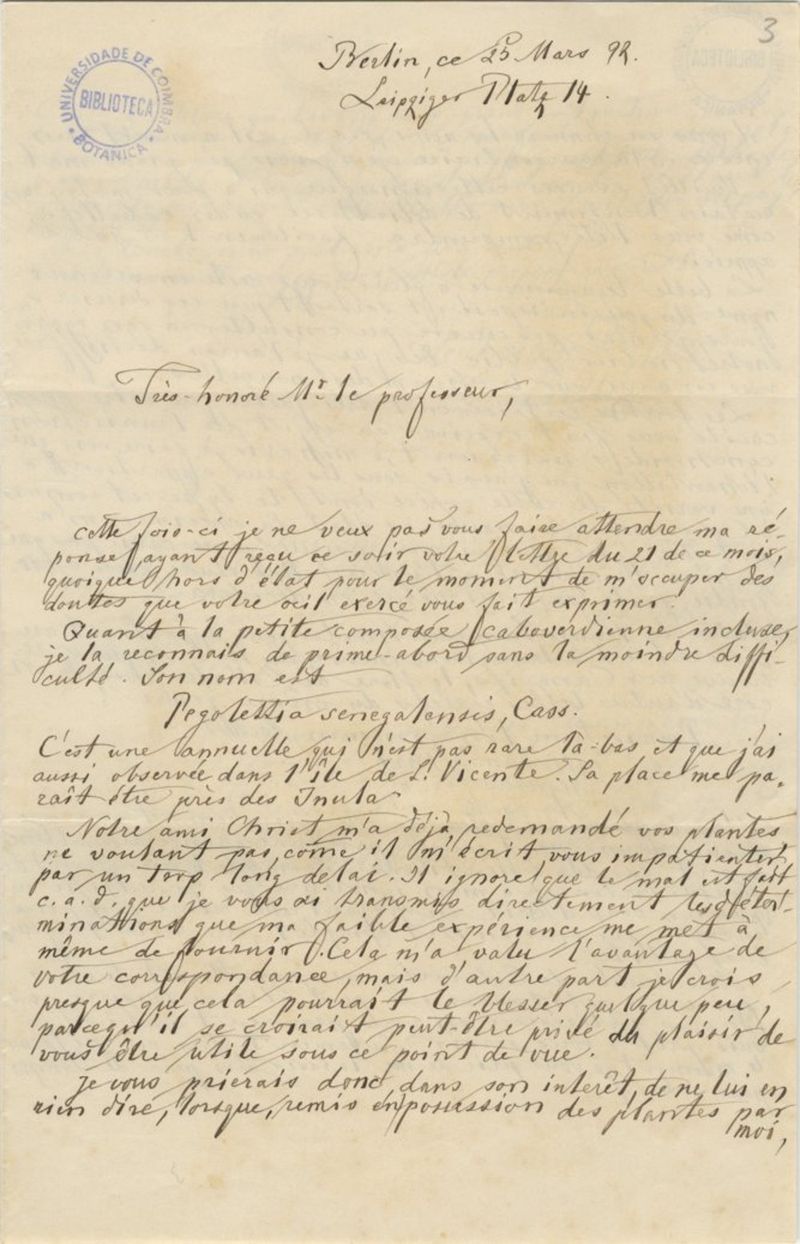 3
UNIVERSIDADE DE COIMBRA
BIBLIOTECA
BOTANICA
Berlin, ce 25 Mars 92.
Leipziger Platz 14.
Très-honoré Mr. le professeur,
cette fois-ci je ne veux pas vous faire attendre ma ré-
ponse, ayant reçu ce soir votre lettre du 21 de ce mois,
quoique hors d'état pour le moment de m'occuper des
doutes que votre oeil exercé vous fait exprimer.
Quant à la petite composée caboverdienne incluse,
je la reconnais de prime-abord sans la moindre diffi-
culté. Son nom est
Pegolettia senegalensis, Cass.
C'est une annuelle qui n'est pas rare là-bas et que j'ai
aussi observée dans l'île de S. Vicente. Sa place me pa-
raît être près des Inula
Notre ami Christ m'a déjà redemandé vos plantes
ne voulant pas, come il m'écrit, vous impatienter
par un trop long délai. Il ignore que le mal est fait
c.a.d. que je vous ai transmis directement les déter-
minations que ma faible expérience me met à
même de fournir. Cela m'a valu l'avantage de
votre correspondance, mais d'autre part je crois
presque que cela pourrait le blesser quelque peu,
parcequ'il se croirait peut-être privé du plaisir de
vous être utile sous ce point de vue.
je vous prierais donc, dans son interêt, de ne lui en
rien dire, lorsque, remis en possession des plantes par
moi,